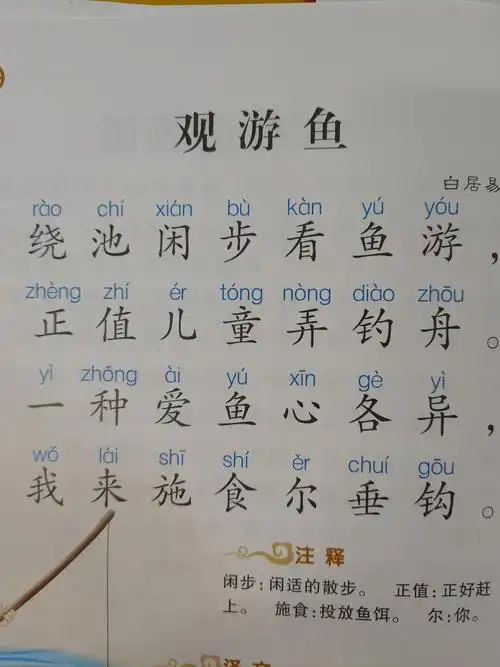 观游鱼
白居易
rào chí xián bù kàn yú yóu
绕池闲步看鱼游，
zhèng zhí ér tóng nòng diào zhōu
正值儿童弄钓舟。
yì zhǒng ài yú xīn gè yì
一种爱鱼心各异，
wǒ lái shī shí ěr chuí gōu
我来施食尔垂钩。
注释
闲步：闲适的散步。 正值：正好赶
上。 施食：投放鱼饵。 尔：你。